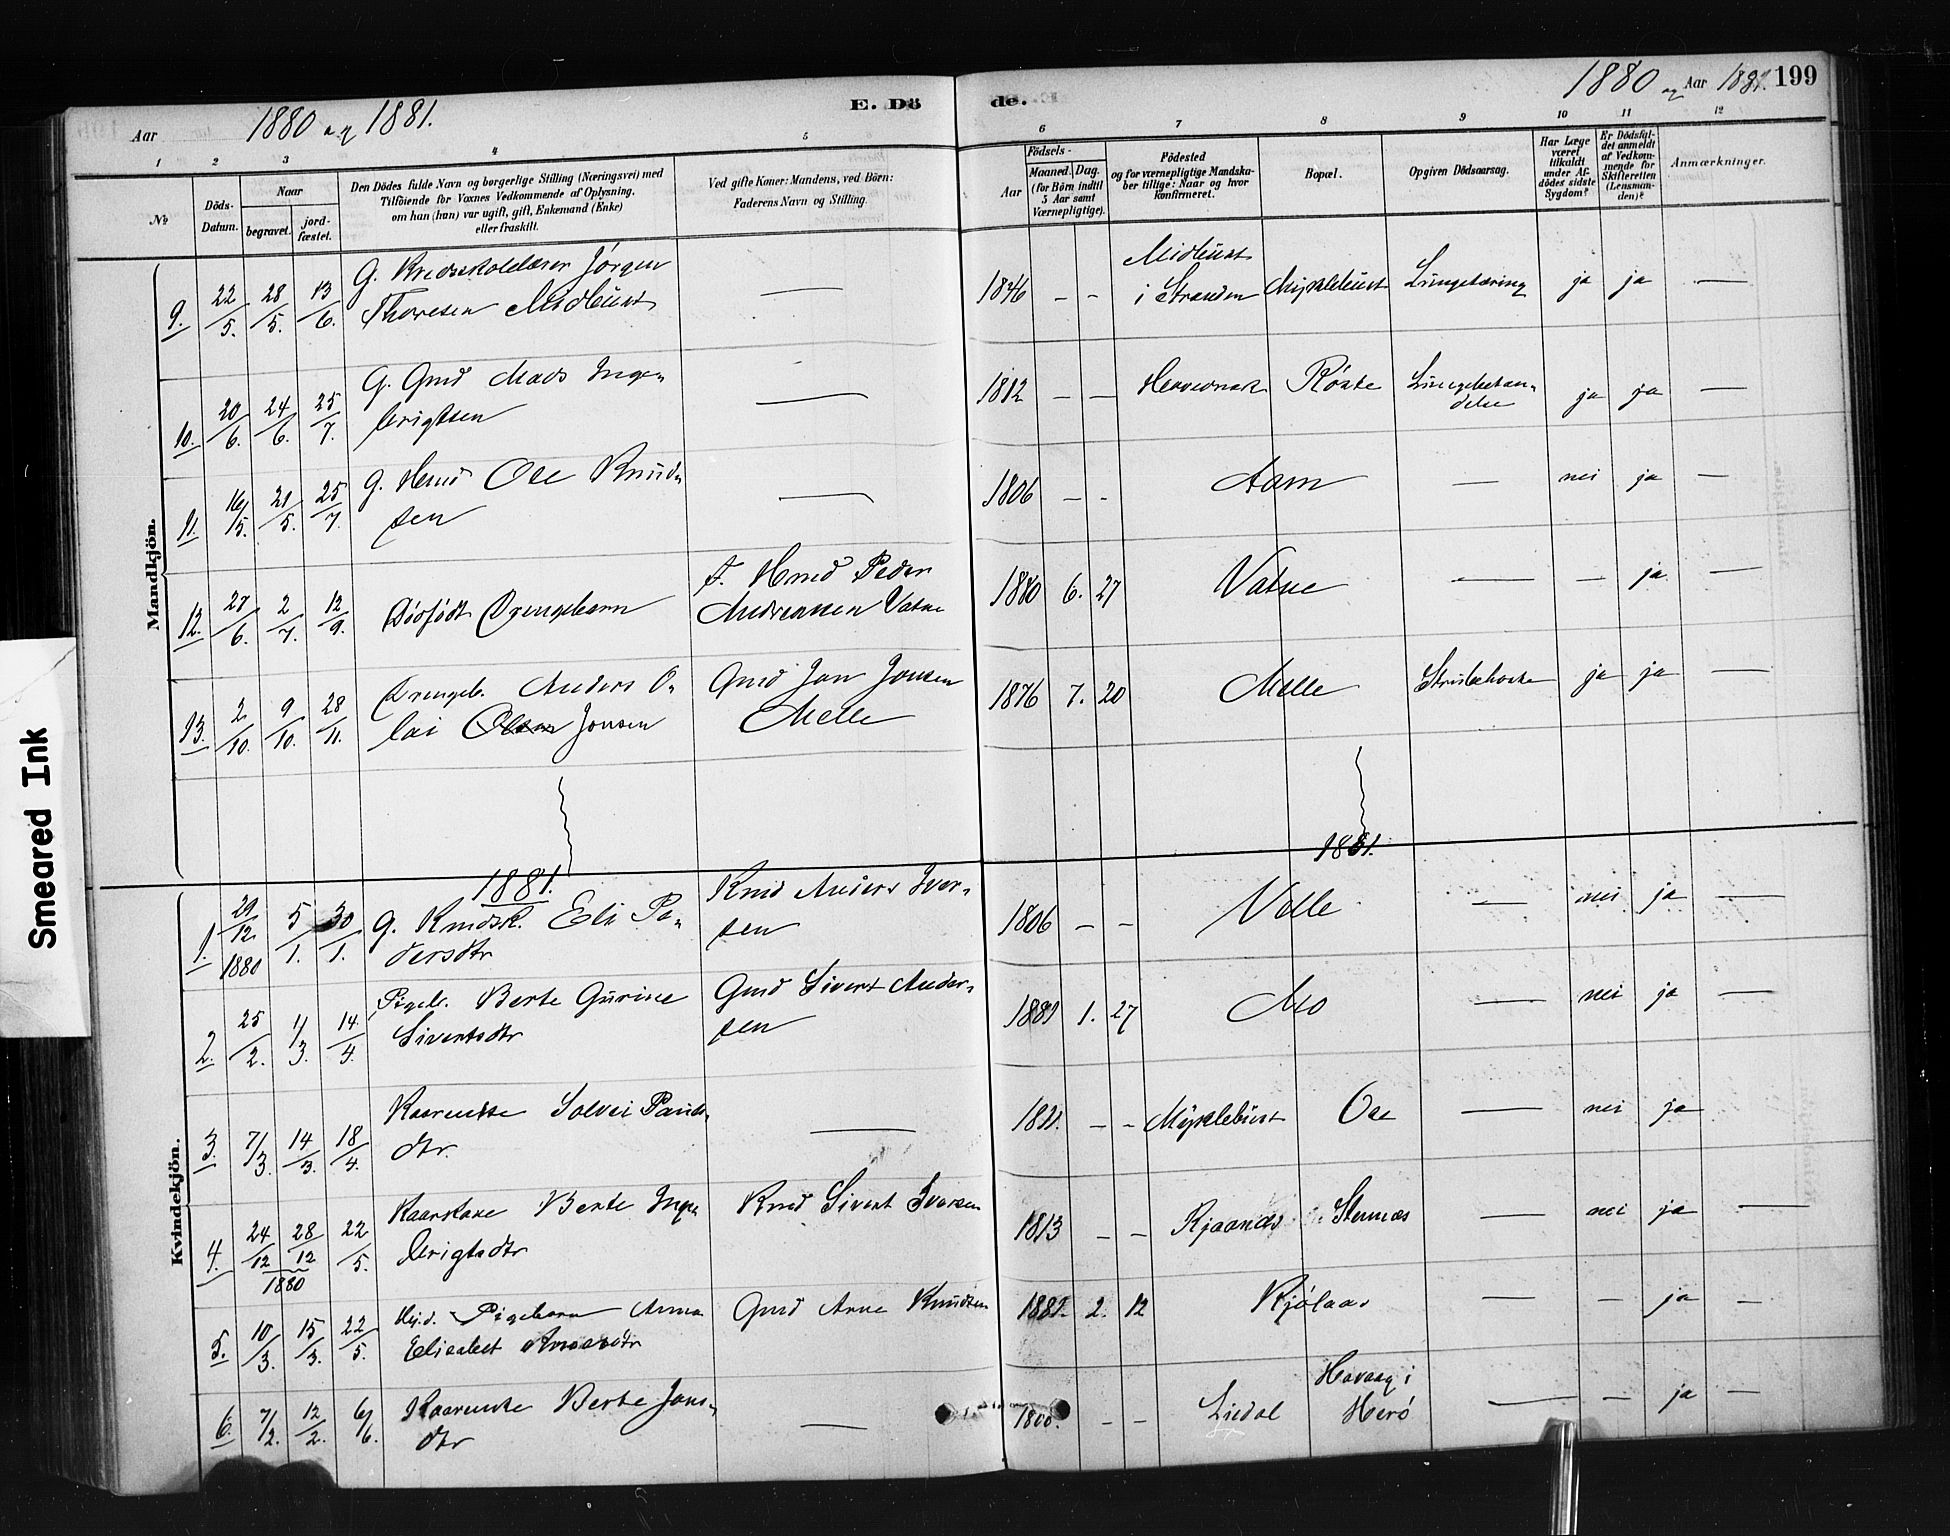 Aar 1880 og 1881. E. Dö de. 1880 og Aar 1881. 199
1 2 3 4 5 6 7 8 9 10 11 12
No
Döds-
Datum.
Naar
begravet.
jord-
fæstet.
Den Dödes fulde Navn og borgerlige Stilling (Næringsvei) med
Tilföiende for Voxnes Vedkommende af Oplysning,
om han (hun) var ugift, gift, Enkemand (Enke)
eller fraskilt.
Ved gifte Koner: Mandens, ved Börn:
Faderens Navn og Stilling.
Födsels-
Aar
Maaned. Dag.
(for Börn indtil
5 Aar samt
Værnepligtige).
Födested
og for værnepligtige Mandska-
ber tillige: Naar og hvor
konfirmeret.
Bopæl.
Opgiven Dödsaarsag.
Har Læge
været
tilkaldt
under Af-
dödes sidste
Sygdom?
Er Dödsfal-
det anmeldt
af Vedkom-
mende for
Skifteretten
(Lensman-
den)?
Anmærkninger.
Mandkjön.
9. 22/5. 28/5. 13/6. G. Kredsskolelærer Jörgen
Thoresen Midbust — 1846 – – Midbust
i Stranden Myklebust Lungetæring ja ja —
10. 20/6. 24/6. 25/7. G. Gmd Mads Inge-
brigtsen — 1812 – – Röste Lungebetæn-
delse ja ja —
11. 16/5. 21/5. 25/7. G. Hmd Ose Knud-
sen — 1806 – – Aam — nei ja —
12. 27/6. 2/7. 12/9. Dödfödt Drengebarn F. Hmd Peder
Andreassen Vatne 1880 6. 27 Vatne — — ja —
13. 2/10. 9/10. 28/11. Drengeb. Anders O-
lai Olsen Jonsen Gmd Jon Jonsen
Melle 1876 7. 20 Melle Strubehoste ja ja —
1881. 1881.
Kvindekjön.
1. 29/12 1880 5/1. 30/1. G. Kmdsk. Eli Pe-
dersdtr Kmd Anders Iver-
sen 1806 – – Velle — nei ja —
2. 25/2. 1/3. 14/4. Pigeb. Berte Gurine
Sivertsdtr Gmd Sivert Ander-
sen 1. 27 Mo — nei ja —
3. 7/3. 14/3. 18/4. Kaarenke Solvei Pauls-
dtr. — – – Myklebust Ose — nei ja
4. 24/12 28/12 1880 22/5. Kaarkone Berte Inge-
brigtsdtr Kmd Sivert Iversen 1813 – – Kjaanes Stennes — nei ja —
5. 10/3. 15/3. 22/5. Hj.d. Pigebarn Anna
Elisabet Arnesdtr Gmd Arne Knudsen 2. 12 Kjölaas — – ja –
6. 7/2. 12/2. 6/6. Kaarenke Berte Jons-
dtr — 1800. – – Liedal Havaag i
Herö — – ja –
Smeared Ink